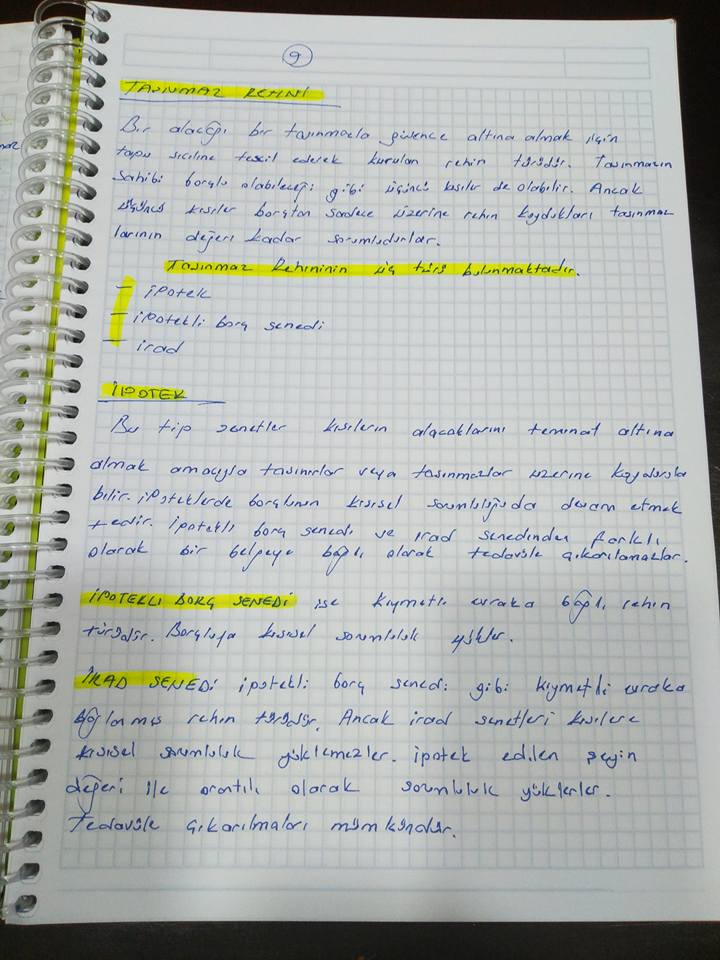 9
TAŞINMAZ REHNİ
Bir alacağı bir taşınmazla güvence altına almak için
tapu siciline tescil ederek kurulan rehin türüdür. Taşınmazın
sahibi borçlu olabileceği gibi üçüncü kişiler de olabilir. Ancak
üçüncü kişiler borçtan sadece üzerine rehin koydukları taşınmaz
larının değeri kadar sorumludurlar.
Taşınmaz Rehininin üç türü bulunmaktadır.
- ipotek
- ipotekli borç senedi
- irad
İPOTEK
Bu tip senetler kişilerin alacaklarını teminat altına
almak amacıyla taşınırlar veya taşınmazlar üzerine koydurula
bilir. ipoteklerde borçlunun kişisel sorumluluğu da devam etmek
tedir. ipotekli borç senedi ve irad senedinden farklı
olarak bir belgeye bağlı olarak tedavüle çıkarılamazlar.
İPOTEKLİ BORÇ SENEDİ ise kıymetli evraka bağlı rehin
türüdür. Borçluya kişisel sorumluluk yükler.
İRAD SENEDİ ipotekli borç senedi gibi kıymetli evraka
bağlanmış rehin türüdür. Ancak irad senetleri kişilere
kişisel sorumluluk yüklemezler. ipotek edilen şeyin
değeri ile orantılı olarak sorumluluk yüklerler.
Tedavüle çıkarılmaları mümkündür.